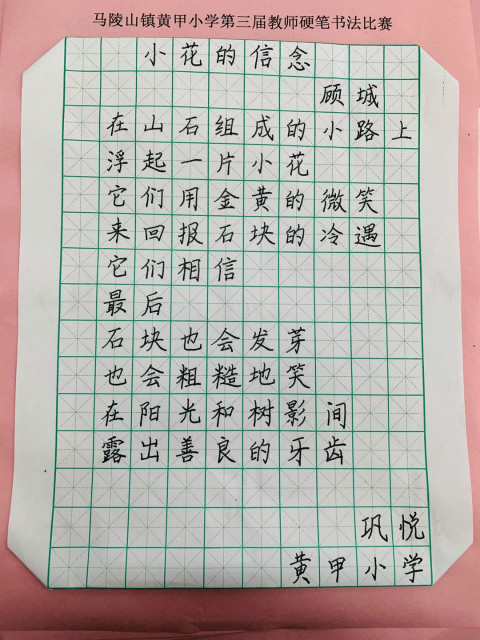 马陵山镇黄甲小学第三届教师硬笔书法比赛
小花的信念
顾城
在山石组成的小路上
浮起一片小花
它们用金黄的微笑
来回报石块的冷遇
它们相信
最后
石块也会发芽
也会粗糙地笑
在阳光和树影间
露出善良的牙齿
巩悦
黄甲小学